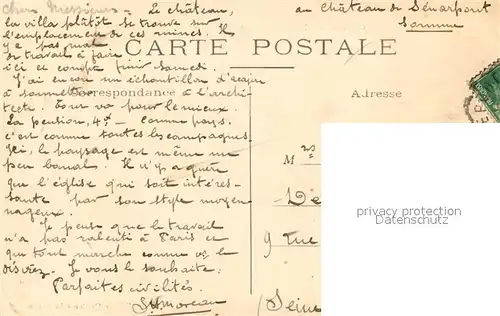 Chers Messieurs - Le château,
la villa plutôt se trouve sur
l'emplacement de ces ruines. Il
y a pas mal
de travail à faire
ici et compte finir samedi.
J'ai encore un échantillon d'acajou
à soumettre à l'archi-
tecte. Tout va pour le mieux.
La pension, 4f - comme pays.
c'est comme toutes les campagnes
ici, le paysage est même un
peu banal. Il n'y a guère
que l'église qui soit intéres-
sante par son style moyen
nageux.
Je pense que le travail
n'a pas ralenti à Paris et
que tout marche comme vs le
désirez. Je vous le souhaite.
Parfaites civilités.
Moreau
au château de Sénarpont
Somme
CARTE POSTALE
Correspondance
Adresse
Mrs
De
9 rue
(Seine
privacy protection